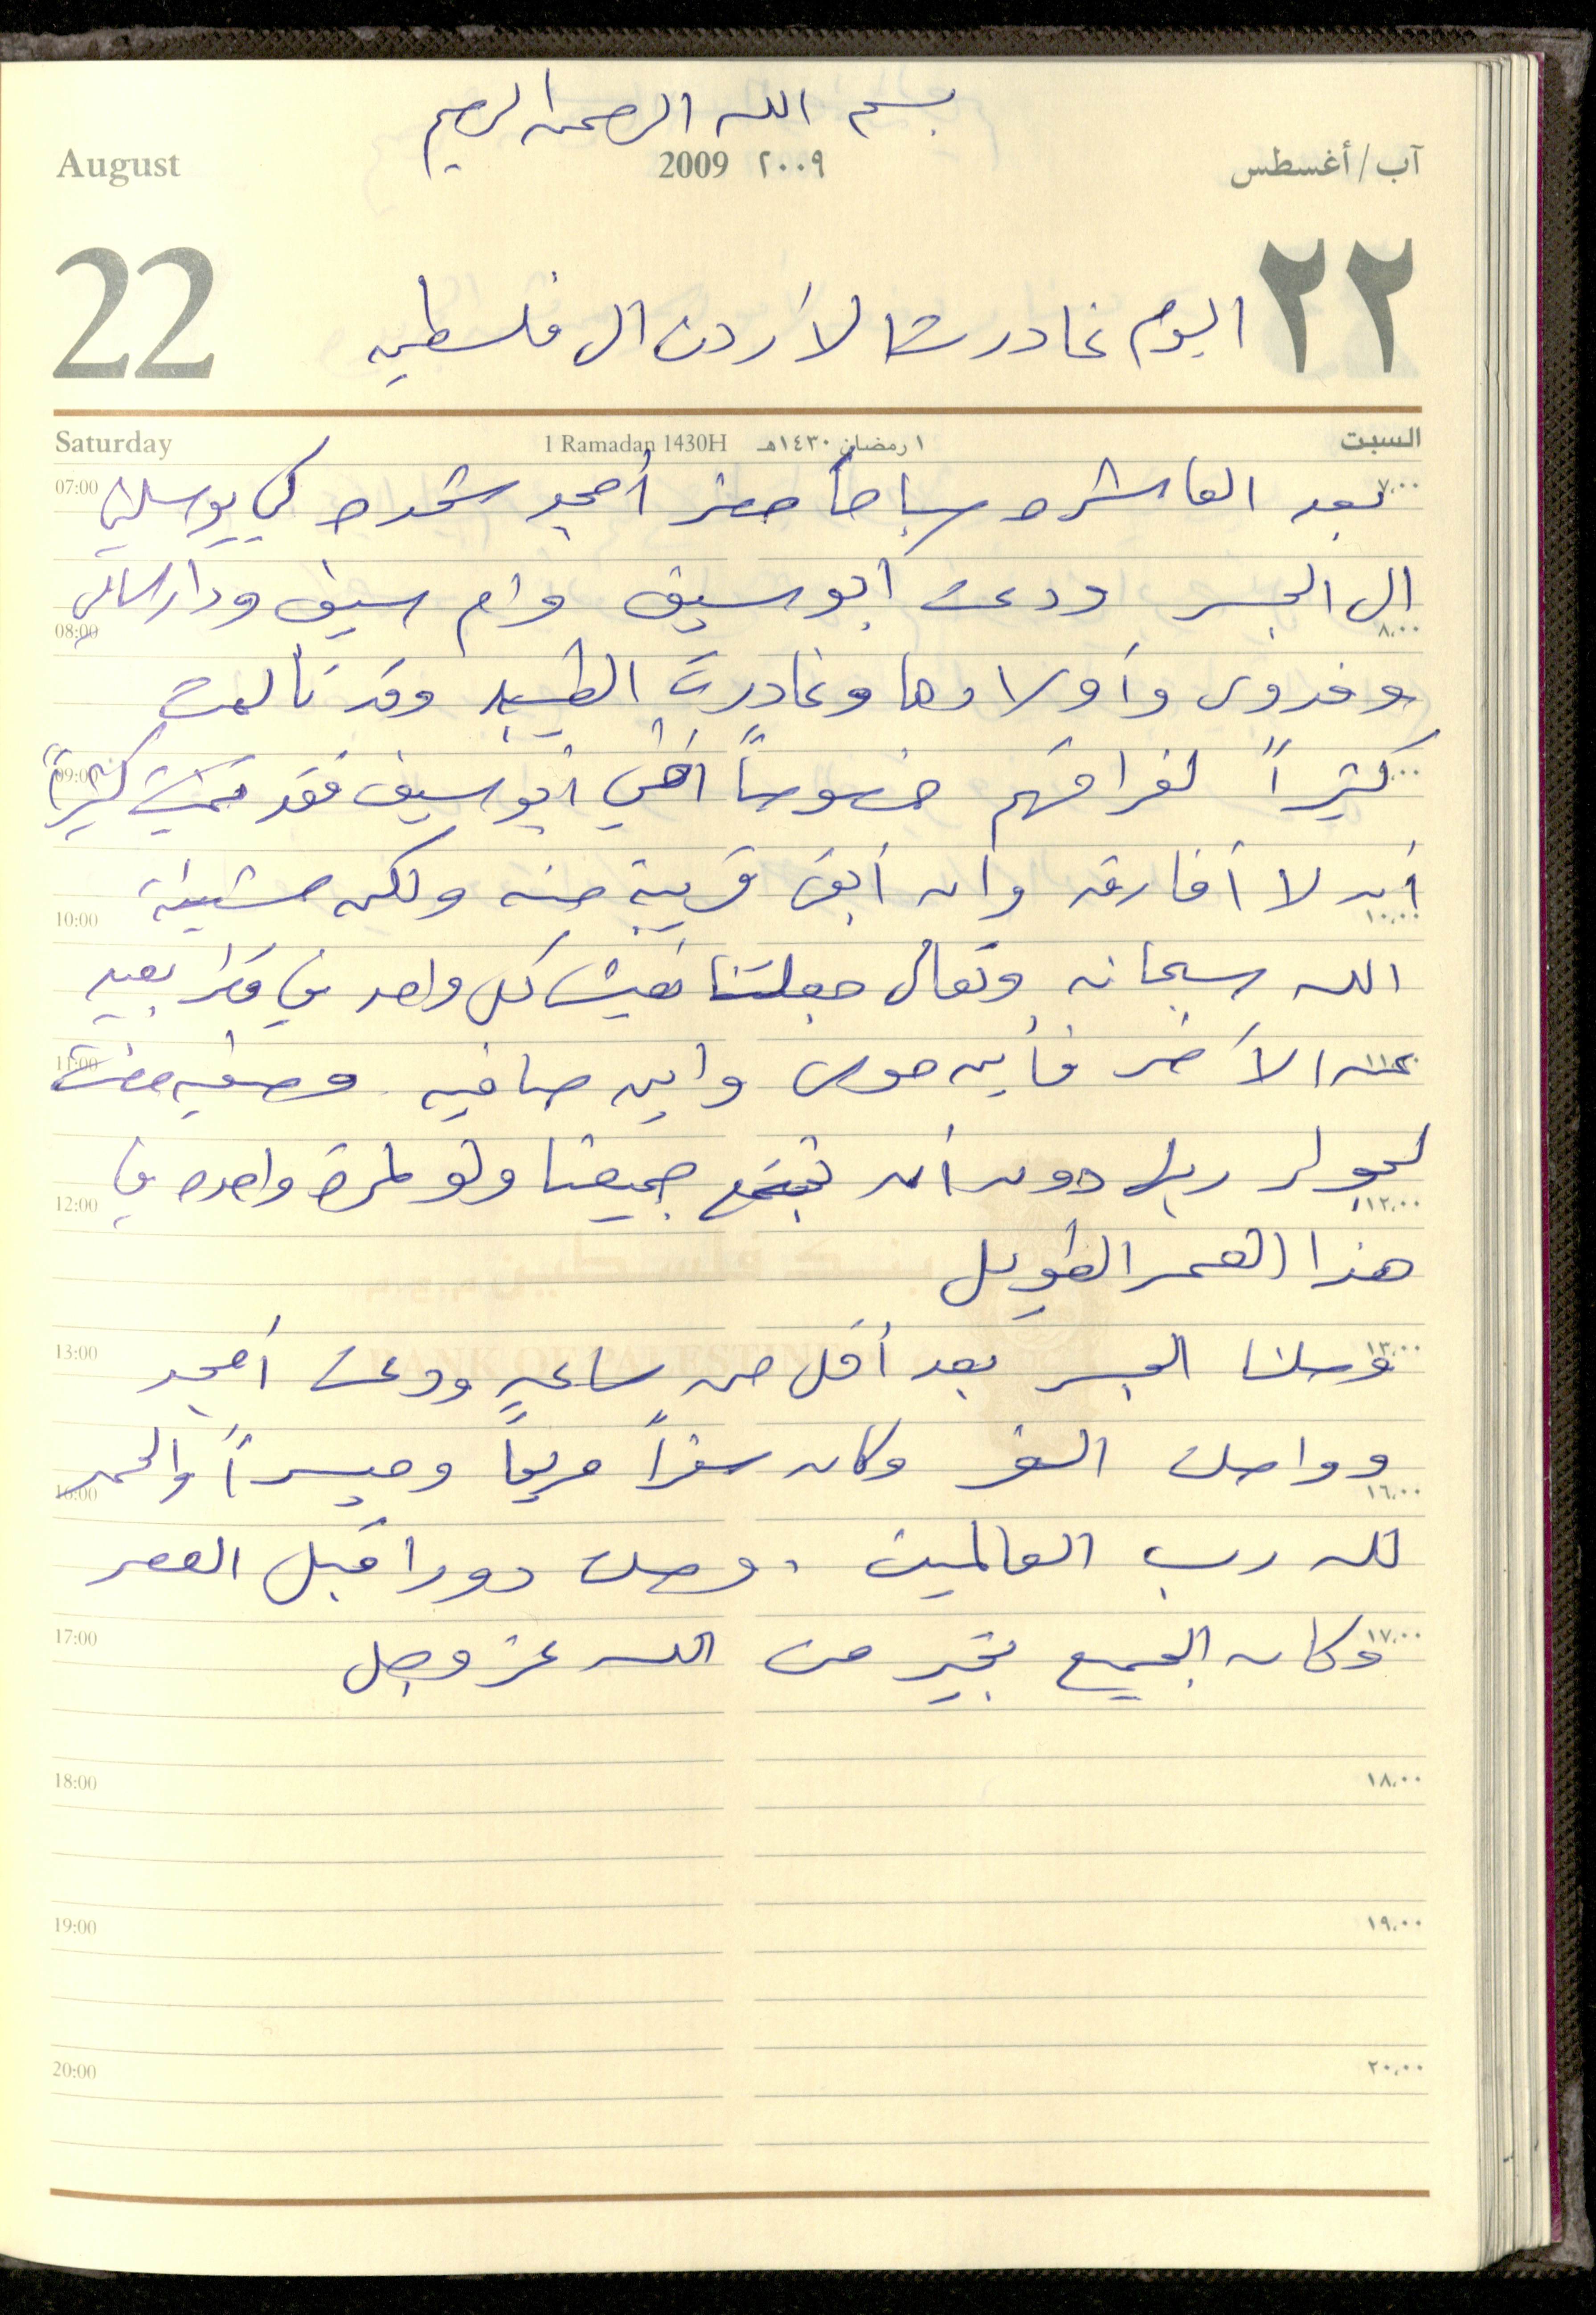 بسم الله الرحمن الرحيم
August 2009 ٢٠٠٩ آب/أغسطس
22 ٢٢
اليوم غادرت الأردن الى فلسطين
Saturday 1 Ramadan 1430H ١ رمضان ١٤٣٠هـ السبت
07:00 ٧،٠٠
بعد العاشره صباحاً حضر أمجد شحده كي يوصلني
الى الجسر ودعت ابو سيف وام سيف ودار
08:00 ٨،٠٠
وفدوى وأولادها وغادرت الطيبه وقد تألمت
09:00
كثيراً لفراقهم خصوصاً أخي ابو سيف فقد تمنيت كثيراً
أن لا أفارقه وان أبقى قريبة منه ولكن مشيئة
10:00 ١٠،٠٠
الله سبحانه وتعالى جعلتنا نعيش كل واحد في بعيد
11:00 ١١،٠٠
عن الآخر فأين موسى واين صافيه وصفيه مضت
لجوار ربها دون أن نجتمع جميعنا ولو لمرة واحده في
12:00 ١٢،٠٠
هذا العمر الطويل
بنك فلسطين
13:00 ١٣،٠٠
BANK OF PALESTINE
وصلنا الجسر بعد أقل من ساعه ودعت أمجد
وواصلت السفر وكان سفراً مريحاً وميسراً والحمد
16:00 ١٦،٠٠
لله رب العالمين . وصلت دورا قبل العصر
17:00 ١٧،٠٠
وكان الجميع بخير من الله عز وجل
18:00 ١٨،٠٠
19:00 ١٩،٠٠
20:00 ٢٠،٠٠